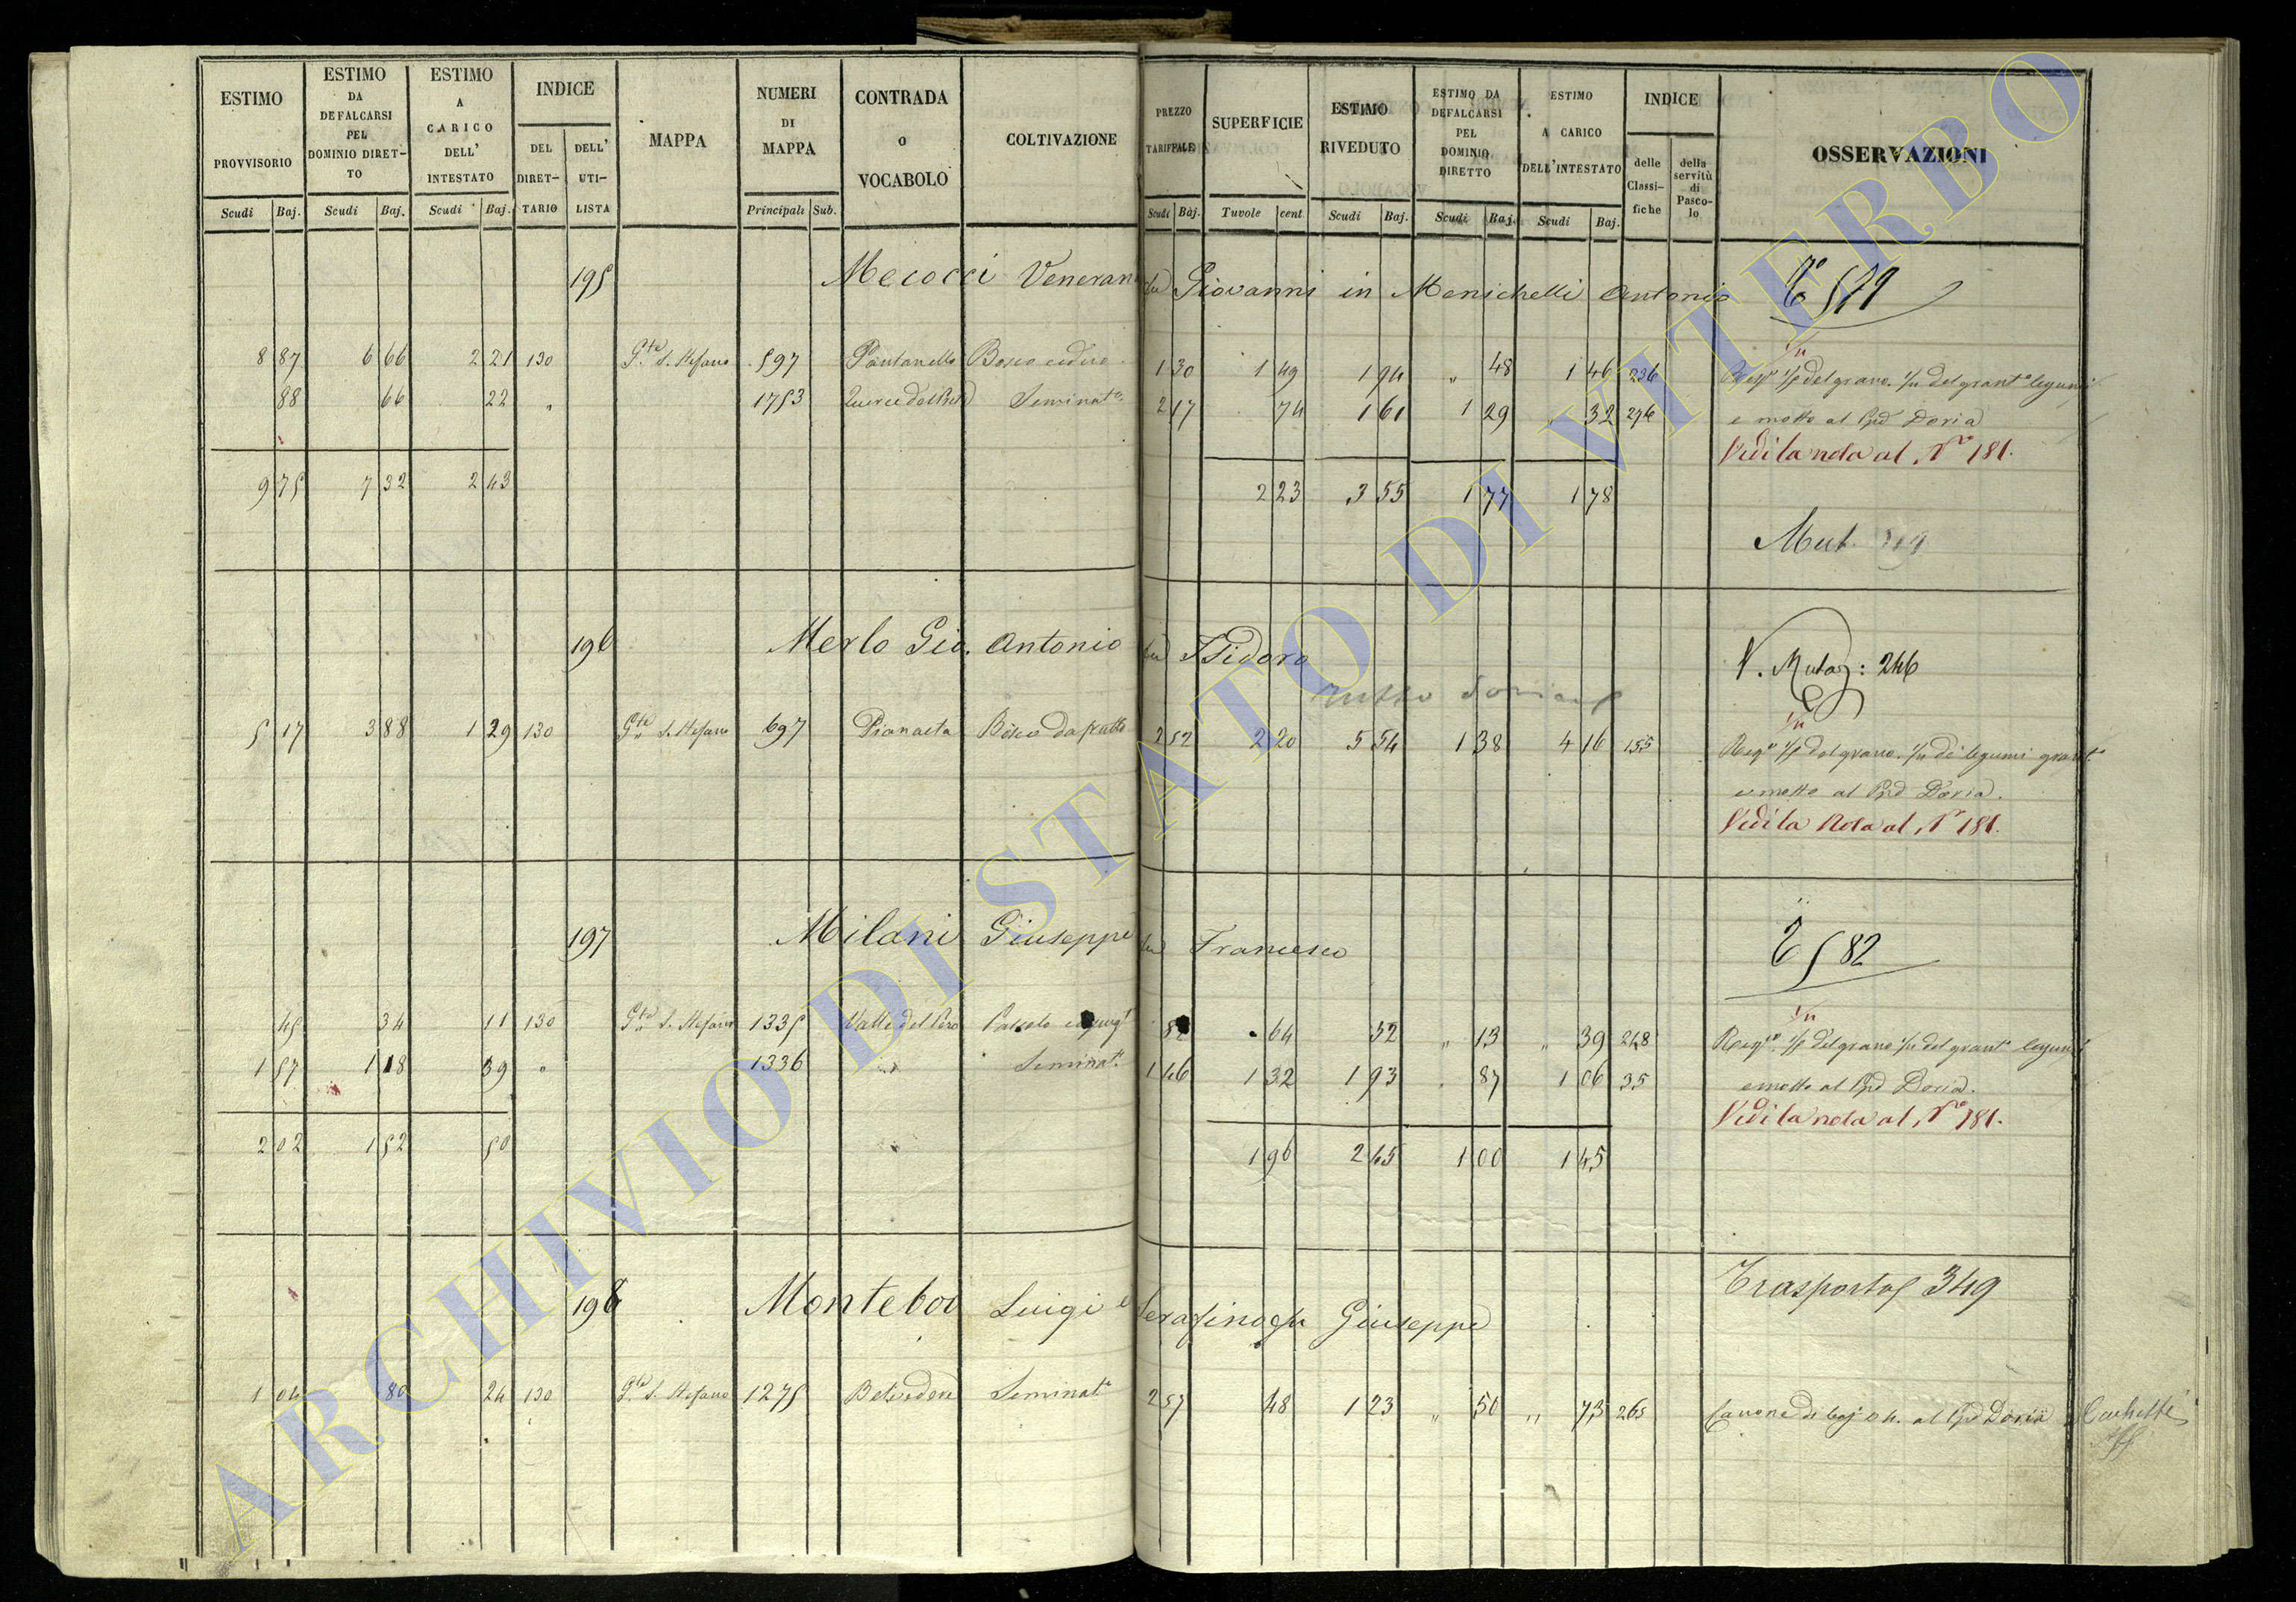 ESTIMO PROVVISORIO Scudi Baj.
ESTIMO DA DEFALCARSI PEL DOMINIO DIRET-TO Scudi Baj.
ESTIMO A CARICO DELL' INTESTATO Scudi Baj.
INDICE DEL DIRET-TARIO DELL' UTI-LISTA
MAPPA
NUMERI DI MAPPA Principali Sub.
CONTRADA o VOCABOLO
COLTIVAZIONE
PREZZO TARIFFALE Scudi Baj.
SUPERFICIE Tavole cent.
ESTIMO RIVEDUTO Scudi Baj.
ESTIMO DA DEFALCARSI PEL DOMINIO DIRETTO Scudi Baj.
ESTIMO A CARICO DELL'INTESTATO Scudi Baj.
INDICE delle Classi-fiche della servitù di Pasco-lo
OSSERVAZIONI
195 Mecocci Veneran fu Giovanni in Menichelli Antonio
8 87 6 66 2 21 130 G.ta S. Stefano 597 Pantanella Bosco ceduo 1 30 1 49 1 94 " 48 1 46 236
88 66 22 " 1753 Seminat.o 2 17 74 1 61 1 29 32 276 e mosto al Doria
Vedi la nota al N.o 181.
9 75 7 32 2 43 2 23 3 55 1 77 1 78
Mut. 519
196 Merlo Gio. Antonio fu Isidoro V. Mutaz: 246
5 17 3 88 1 29 130 G.ta S. Stefano 697 Pianaeta Bosco da frutto 2 52 2 20 5 54 1 38 4 16 155
e mosto al Doria.
Vedi la Nota al N.o 181.
197 Milani Giuseppe fu Francesco T 582
45 34 11 130 G.ta S. Stefano 1335 Valle del Pero 82 64 52 " 13 " 39 248
1 57 1 18 39 " 1336 " Seminat.o 1 46 1 32 1 93 87 1 06 35 e mosto al Doria.
Vedi la nota al N.o 181.
2 02 1 52 50 1 96 2 45 1 00 1 45
Trasporto 349
198 Monteboi Luigi e Serafino fu Giuseppe
1 04 80 24 130 G.ta S. Stefano 1275 Belvedere Seminat.o 2 57 48 1 23 " 50 " 73 265 Canone di baj al Doria
ARCHIVIO DI STATO DI VITERBO